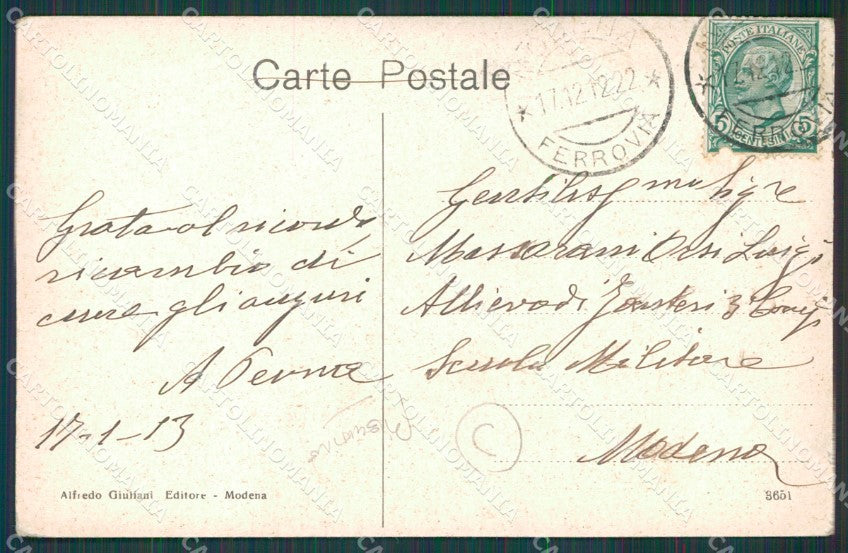 Carte Postale
MODENA
17.12.1922
FERROVIA
POSTE ITALIANE
5 CENTESIMI 5
FERROVIA
Grata al ricordo
ricambio di
cuore gli auguri
A
17-1-13
Gentiliss mo Sigre
Massarani Orsi Luigi
Allievo di 3 Compi
Scuola Militare
Modena
C
Alfredo Giuliani Editore - Modena
3651
CARTOLINOMANIA